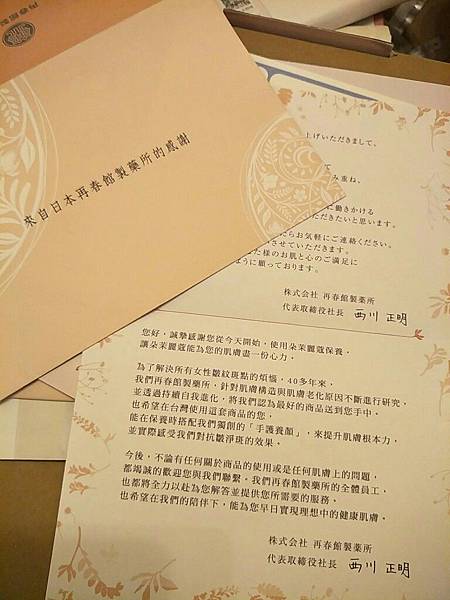 再春館製
來自日本再春館製藥所的感謝
上げいただきまして、
て
み重ね、
に働きかける
ただきたいと思います。
たらお気軽にご連絡ください。
させていただきます。
た様のお肌と心のご満足に
ように願っております。
株式会社 再春館製薬所
代表取締役社長 西川 正明
您好，誠摯感謝您從今天開始，使用朵茉麗蔻保養，
讓朵茉麗蔻能為您的肌膚盡一份心力。
為了解決所有女性皺紋斑點的煩惱，40多年來，
我們再春館製藥所，針對肌膚構造與肌膚老化原因不斷進行研究，
並透過持續自我進化，將我們認為最好的商品送到您手中。
也希望在台灣使用這套商品的您，
能在保養時搭配我們獨創的「手護養顏」，來提升肌膚根本力，
並實際感受我們對抗皺淨斑的效果。
今後，不論有任何關於商品的使用或是任何肌膚上的問題，
都竭誠的歡迎您與我們聯繫。我們再春館製藥所的全體員工，
也都將全力以赴為您解答並提供您所需要的服務。
也希望在我們的陪伴下，能為您早日實現理想中的健康肌膚。
株式会社 再春館製薬所
代表取締役社長 西川 正明